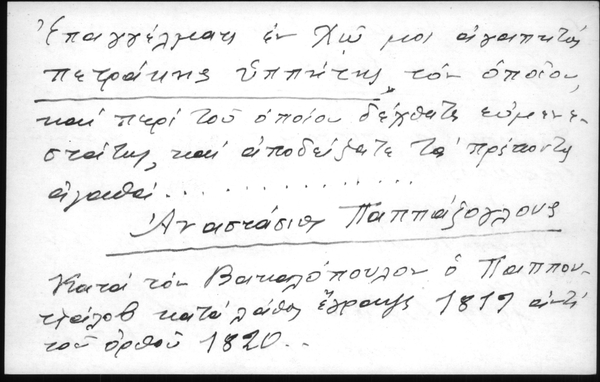 ἐν Χίῳ μοι ἀγαπητὸς
πετράκης ὑππήτης τὸν ὁποῖον,
καὶ περὶ τοῦ ὁποίου δέχθητε εὐμενε-
στάτης, καὶ ἀποδείξατε τὰ πρέποντα
ἀγαθά..............
Ἀναστάσιος Παππάζογλους
Κατὰ τὸν Βακαλόπουλον ὁ Παππου-
κατὰ λάθος ἔγραψε 1819 ἀντὶ
τοῦ ὀρθοῦ 1820...